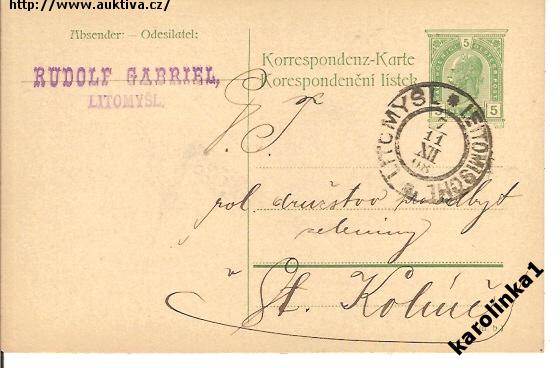 http://www.auktiva.cz/
Absender: — Odesilatel:
RUDOLF GABRIEL,
LITOMYŠL.
Korrespondenz-Karte
Korespondenční lístek
5 5
5 5
LITOMYŠL * LEITOMISCHL *
11
XI
08
P. T.
rol. družstvo pro odbyt
zeleniny
v
St. Kolíně
karolinka1